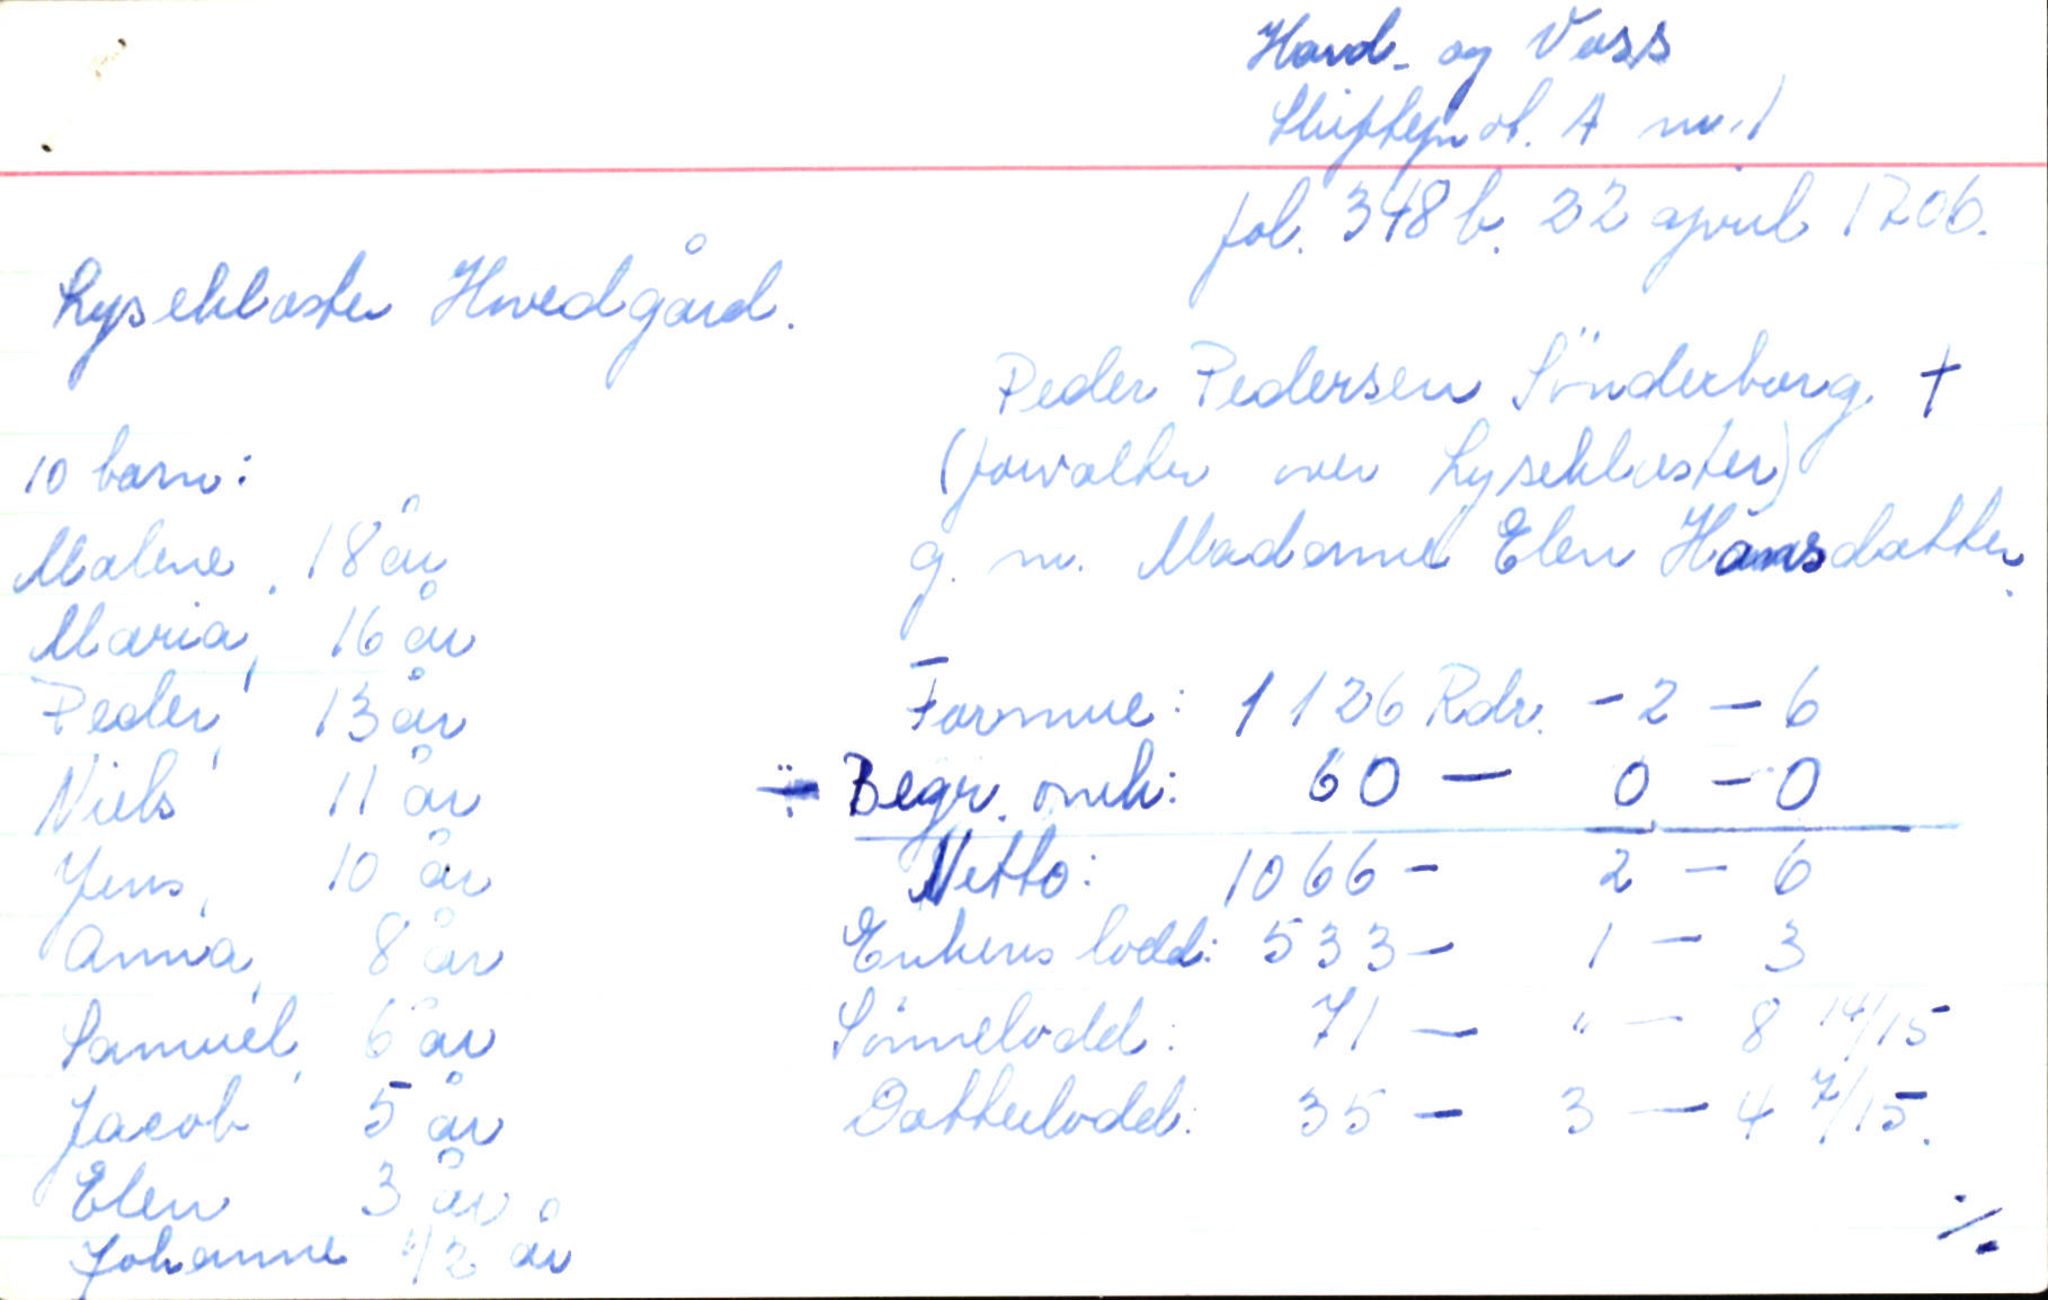 Hard- og Voss
Skifteprot. A nr. 1
fol. 348 b. 22 april 1706.
Lysekloster Hovedgård.
Peder Pedersen Sönderborg †
(forvalter over Lysekloster)
g. m. Madame Elen Hansdatter.
10 barn:
Malene, 18 år
Maria, 16 år
Peder, 13 år
Niels 11 år
Jens, 10 år
Anna, 8 år
Samuel, 6 år
Jacob 5 år
Elen 3 år
Johanne 1/2 år
Formue: 1126 Rdr. - 2 - 6
÷ Begr. omk: 60 - 0 - 0
Netto: 1066 - 2 - 6
Enkens lodd: 533 - 1 - 3
Sönnelodd: 71 - " - 8 14/15
Datterlodd: 35 - 3 - 4 7/15.
./.